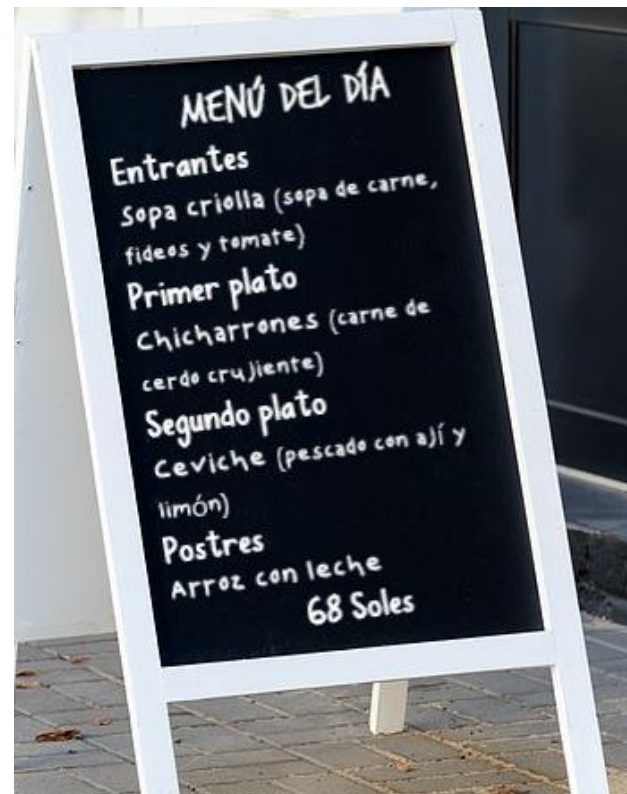 MENÚ DEL DÍA
Entrantes
Sopa criolla (sopa de carne,
fideos y tomate)
Primer plato
Chicharrones (carne de
cerdo crujiente)
Segundo plato
Ceviche (pescado con ají y
limón)
Postres
Arroz con leche
68 Soles